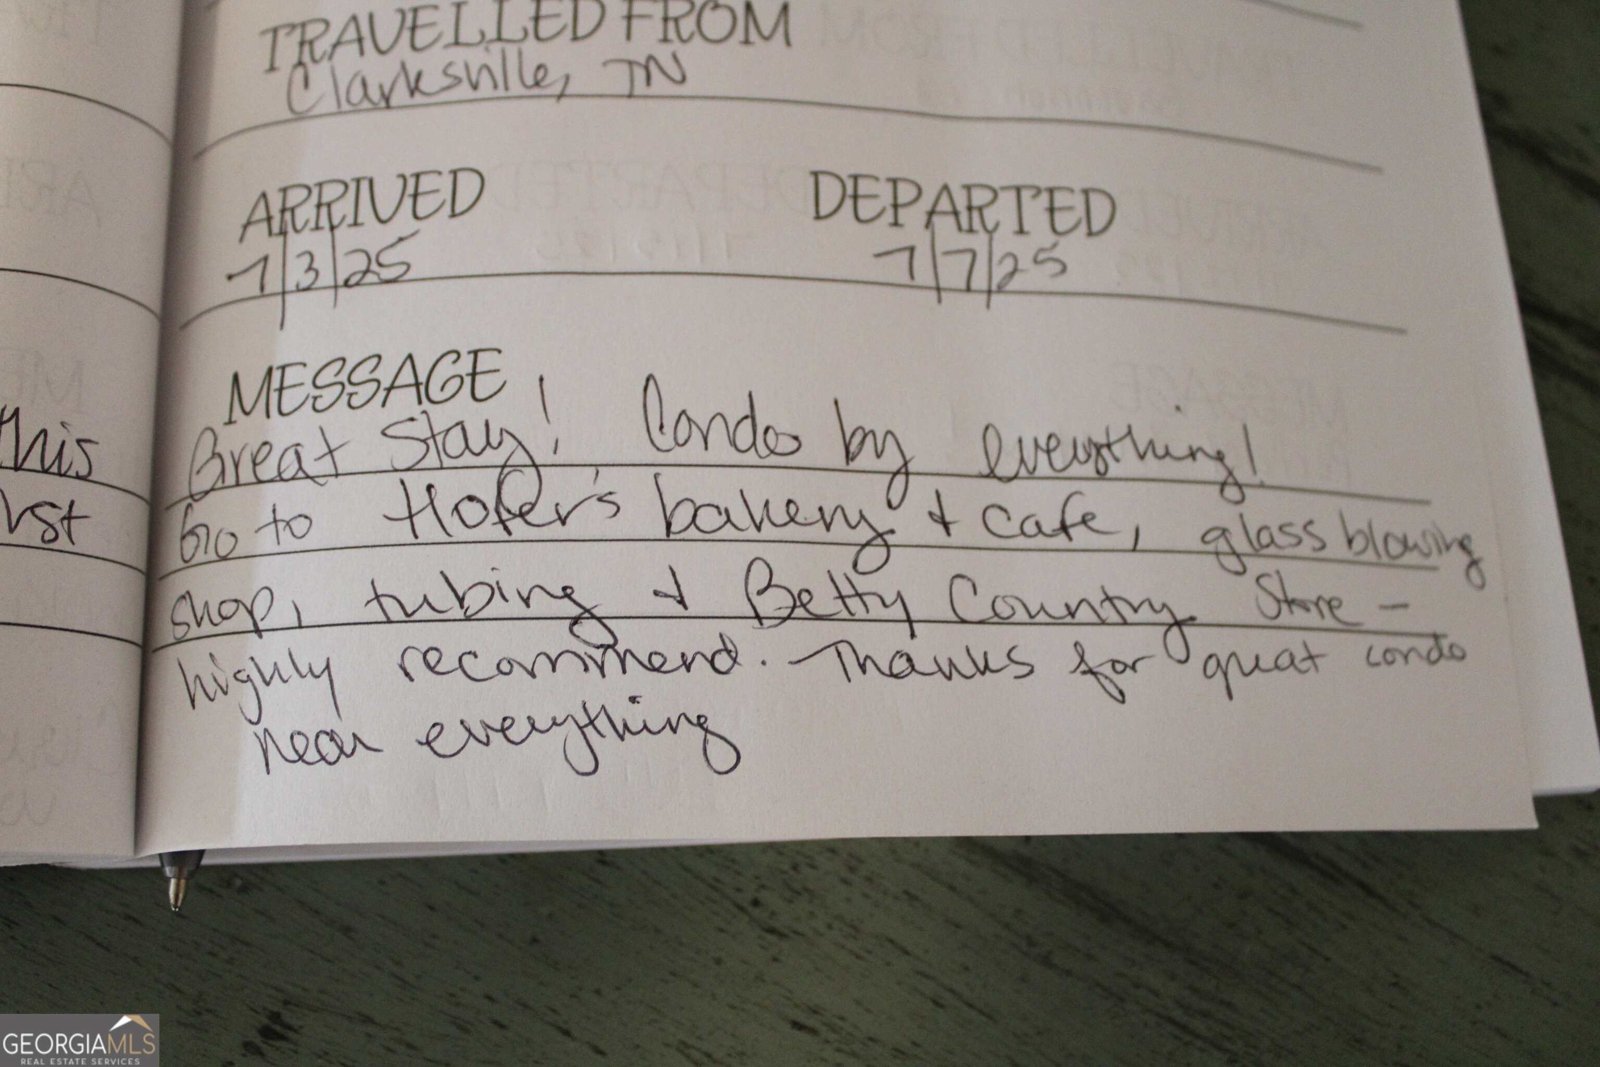 TRAVELLED FROM
Clarksville, TN
ARRIVED DEPARTED
7/3/25 7/7/25
MESSAGE
Great stay! Condo by everything!
Go to Hofer's bakery + cafe, glass blowing
shop, tubing + Betty Country Store -
highly recommend. Thanks for great condo
near everything
this
rst
GEORGIAMLS
REAL ESTATE SERVICES